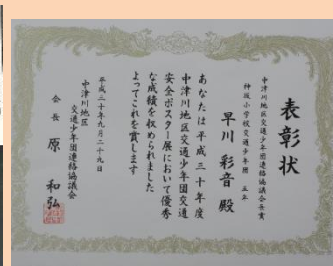 表彰状
中津川地区交通少年団連絡協議会長賞
神坂小学校交通少年団 五年
早川 彩音 殿
あなたは平成三十年度
中津川地区交通少年団交通
安全ポスター展において優秀
な成績を収められました
よってこれを賞します
平成三十年九月二十九日
中津川地区
交通少年団連絡協議会
会長 原 和弘